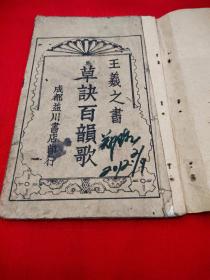 王羲之書
草訣百韻歌
成都益川書店印行
2012.2/9